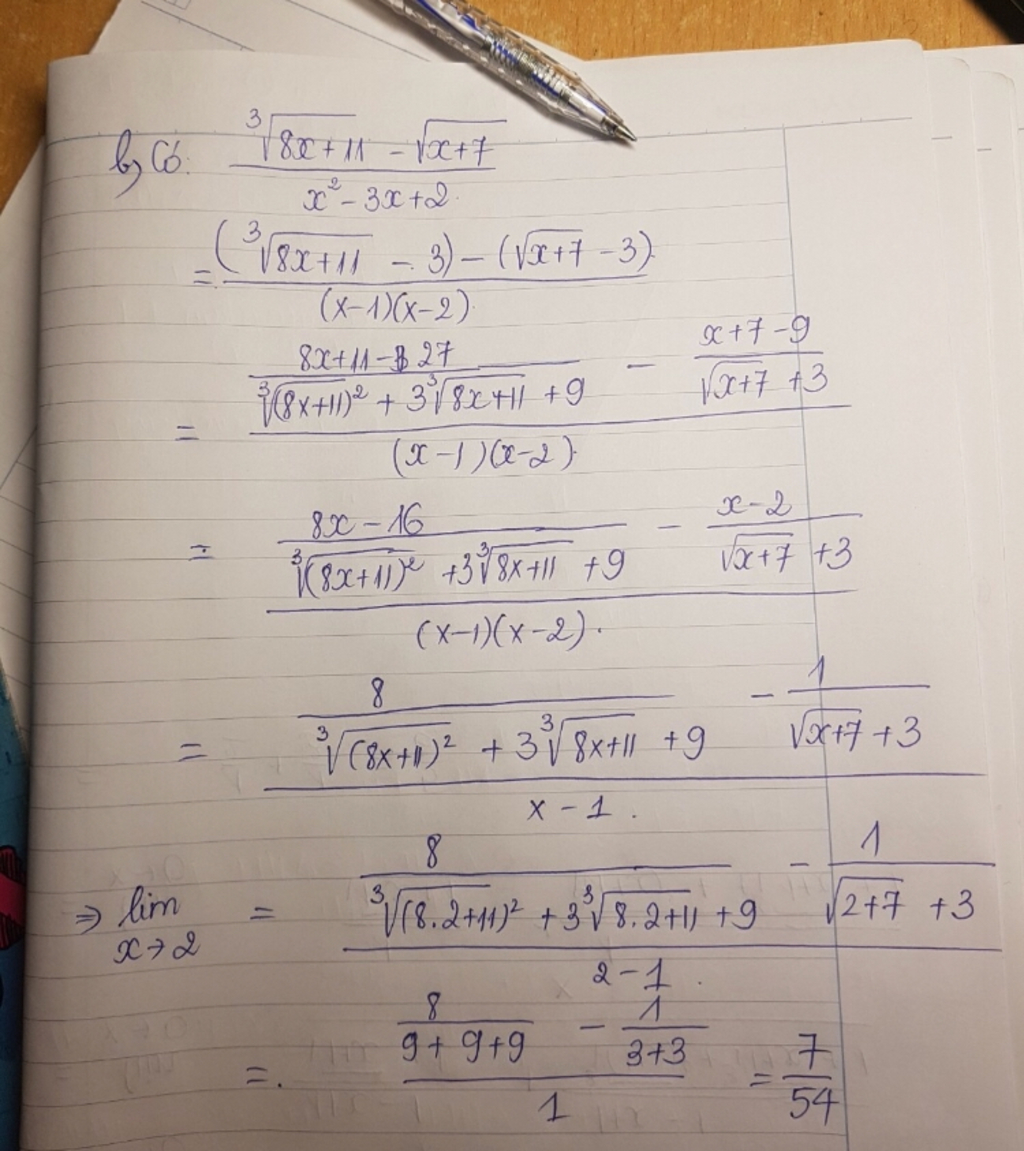 b, Có: \frac{\sqrt[3]{8x+11} - \sqrt{x+7}}{x^2 - 3x + 2}
= \frac{(\sqrt[3]{8x+11} - 3) - (\sqrt{x+7} - 3)}{(x-1)(x-2)}
= \frac{\frac{8x+11-27}{\sqrt[3]{(8x+11)^2} + 3\sqrt[3]{8x+11} + 9} - \frac{x+7-9}{\sqrt{x+7}+3}}{(x-1)(x-2)}
= \frac{\frac{8x-16}{\sqrt[3]{(8x+11)^2} + 3\sqrt[3]{8x+11} + 9} - \frac{x-2}{\sqrt{x+7}+3}}{(x-1)(x-2)}.
= \frac{\frac{8}{\sqrt[3]{(8x+11)^2} + 3\sqrt[3]{8x+11} + 9} - \frac{1}{\sqrt{x+7}+3}}{x-1}.
⇒ \lim_{x→2} = \frac{\frac{8}{\sqrt[3]{(8.2+11)^2} + 3\sqrt[3]{8.2+11} + 9} - \frac{1}{\sqrt{2+7}+3}}{2-1}.
=. \frac{\frac{8}{9+9+9} - \frac{1}{3+3}}{1} = \frac{7}{54}